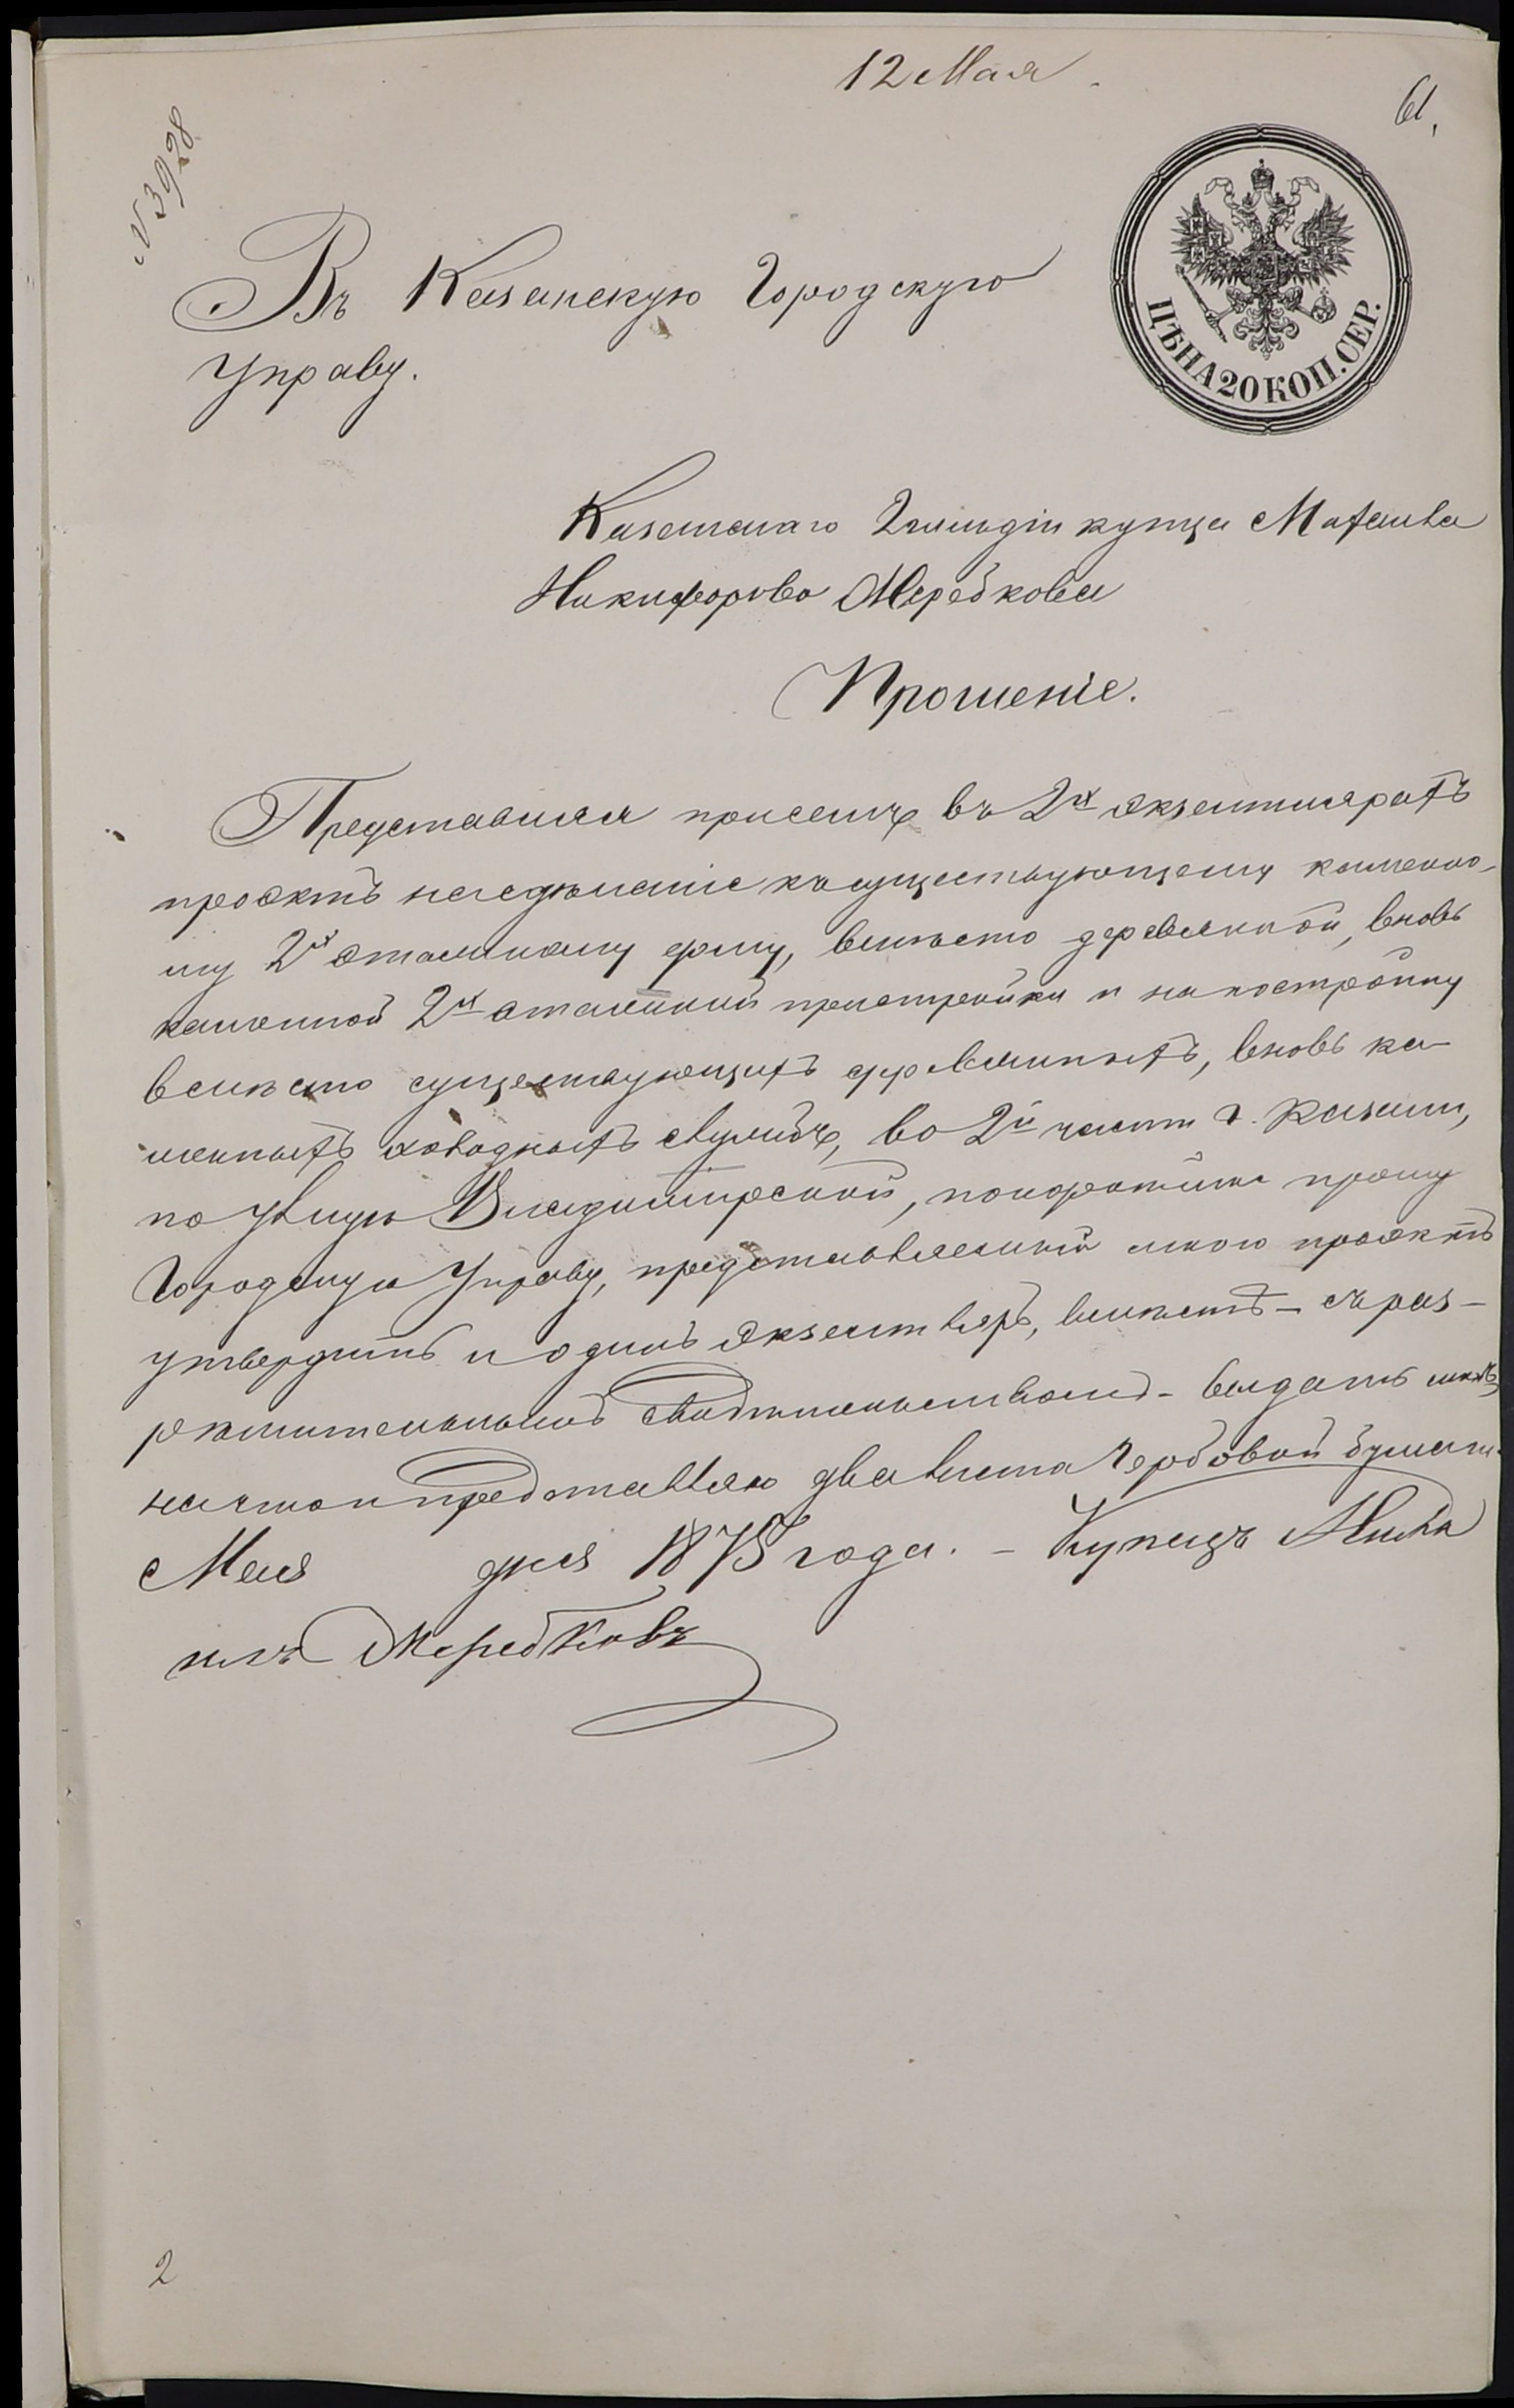 12 Мая
61.
№ 3928
Въ Казанскую Городскую
Управу.
ЦѢНА 20 КОП. СЕР.
Казанскаго 2 гильдіи купца
Никифорова Жеребкова
Прошеніе.
Представляя присемъ въ 2х экземпляратъ
проэктъ на сдѣланіе къ существующему каменно-
му 2х этажному дому, вмѣсто деревянной, вновь
каменной 2х этажной пристройки и на постройку
вмѣсто существующихъ деревянныхъ, вновь ка-
менныхъ холодныхъ службъ, во 2й части г. Казани,
по улицѣ Владимірской, покорнѣйше прошу
Городскую Управу, представляемый мною проэктъ
утвердить и одинъ экземпляръ, вмѣстѣ - съ раз-
рѣшительнымъ свидѣтельствомъ - выдать мнѣ,
на что и представляю два листа гербовой бумаги.
Мая дня 1875 года. - Купецъ
Жеребковъ
2